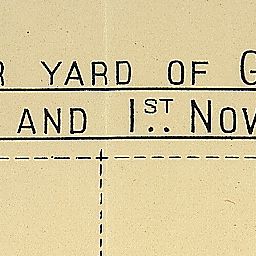 R YARD OF G
AND 1ST NOV